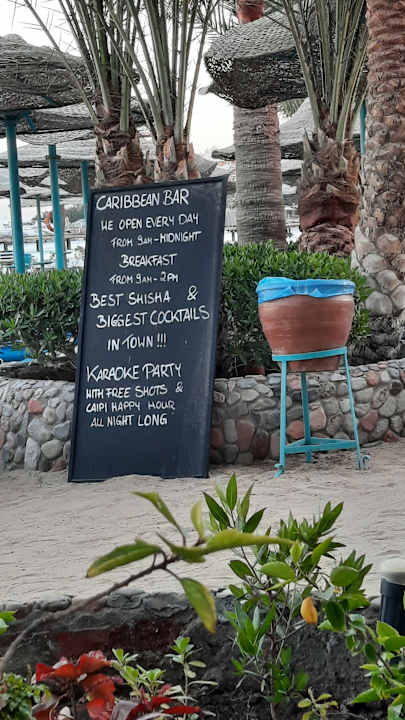 CARIBBEAN BAR
WE OPEN EVERY DAY
FROM 9AM-MIDNIGHT
BREAKFAST
FROM 9AM-2PM
BEST SHISHA &
BIGGEST COCKTAILS
IN TOWN !!!
KARAOKE PARTY
WITH FREE SHOTS &
CAIPI HAPPY HOUR
ALL NIGHT LONG